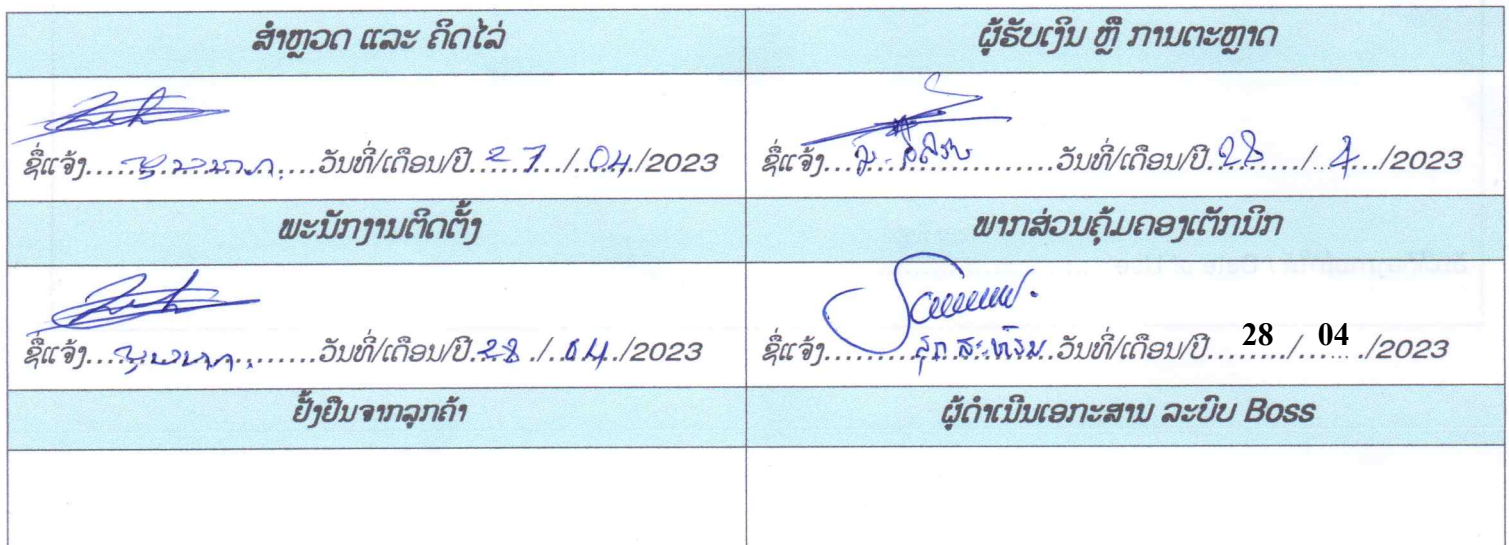 ສຳຫຼວດ ແລະ ຄິດໄລ່
ຜູ້ຮັບເງິນ ຫຼື ການຕະຫຼາດ
ຊື່ແຈ້ງ....................ວັນທີ່/ເດືອນ/ປີ.27./.04./2023
ຊື່ແຈ້ງ....................ວັນທີ່/ເດືອນ/ປີ.28./.4./2023
ພະນັກງານຕິດຕັ້ງ
ພາກສ່ວນຄຸ້ມຄອງເຕັກນິກ
ຊື່ແຈ້ງ....................ວັນທີ່/ເດືອນ/ປີ.28./.04./2023
ຊື່ແຈ້ງ....................ວັນທີ່/ເດືອນ/ປີ.28./.04./2023
ຢັ້ງຢືນຈາກລູກຄ້າ
ຜູ້ດຳເນີນເອກະສານ ລະບົບ Boss